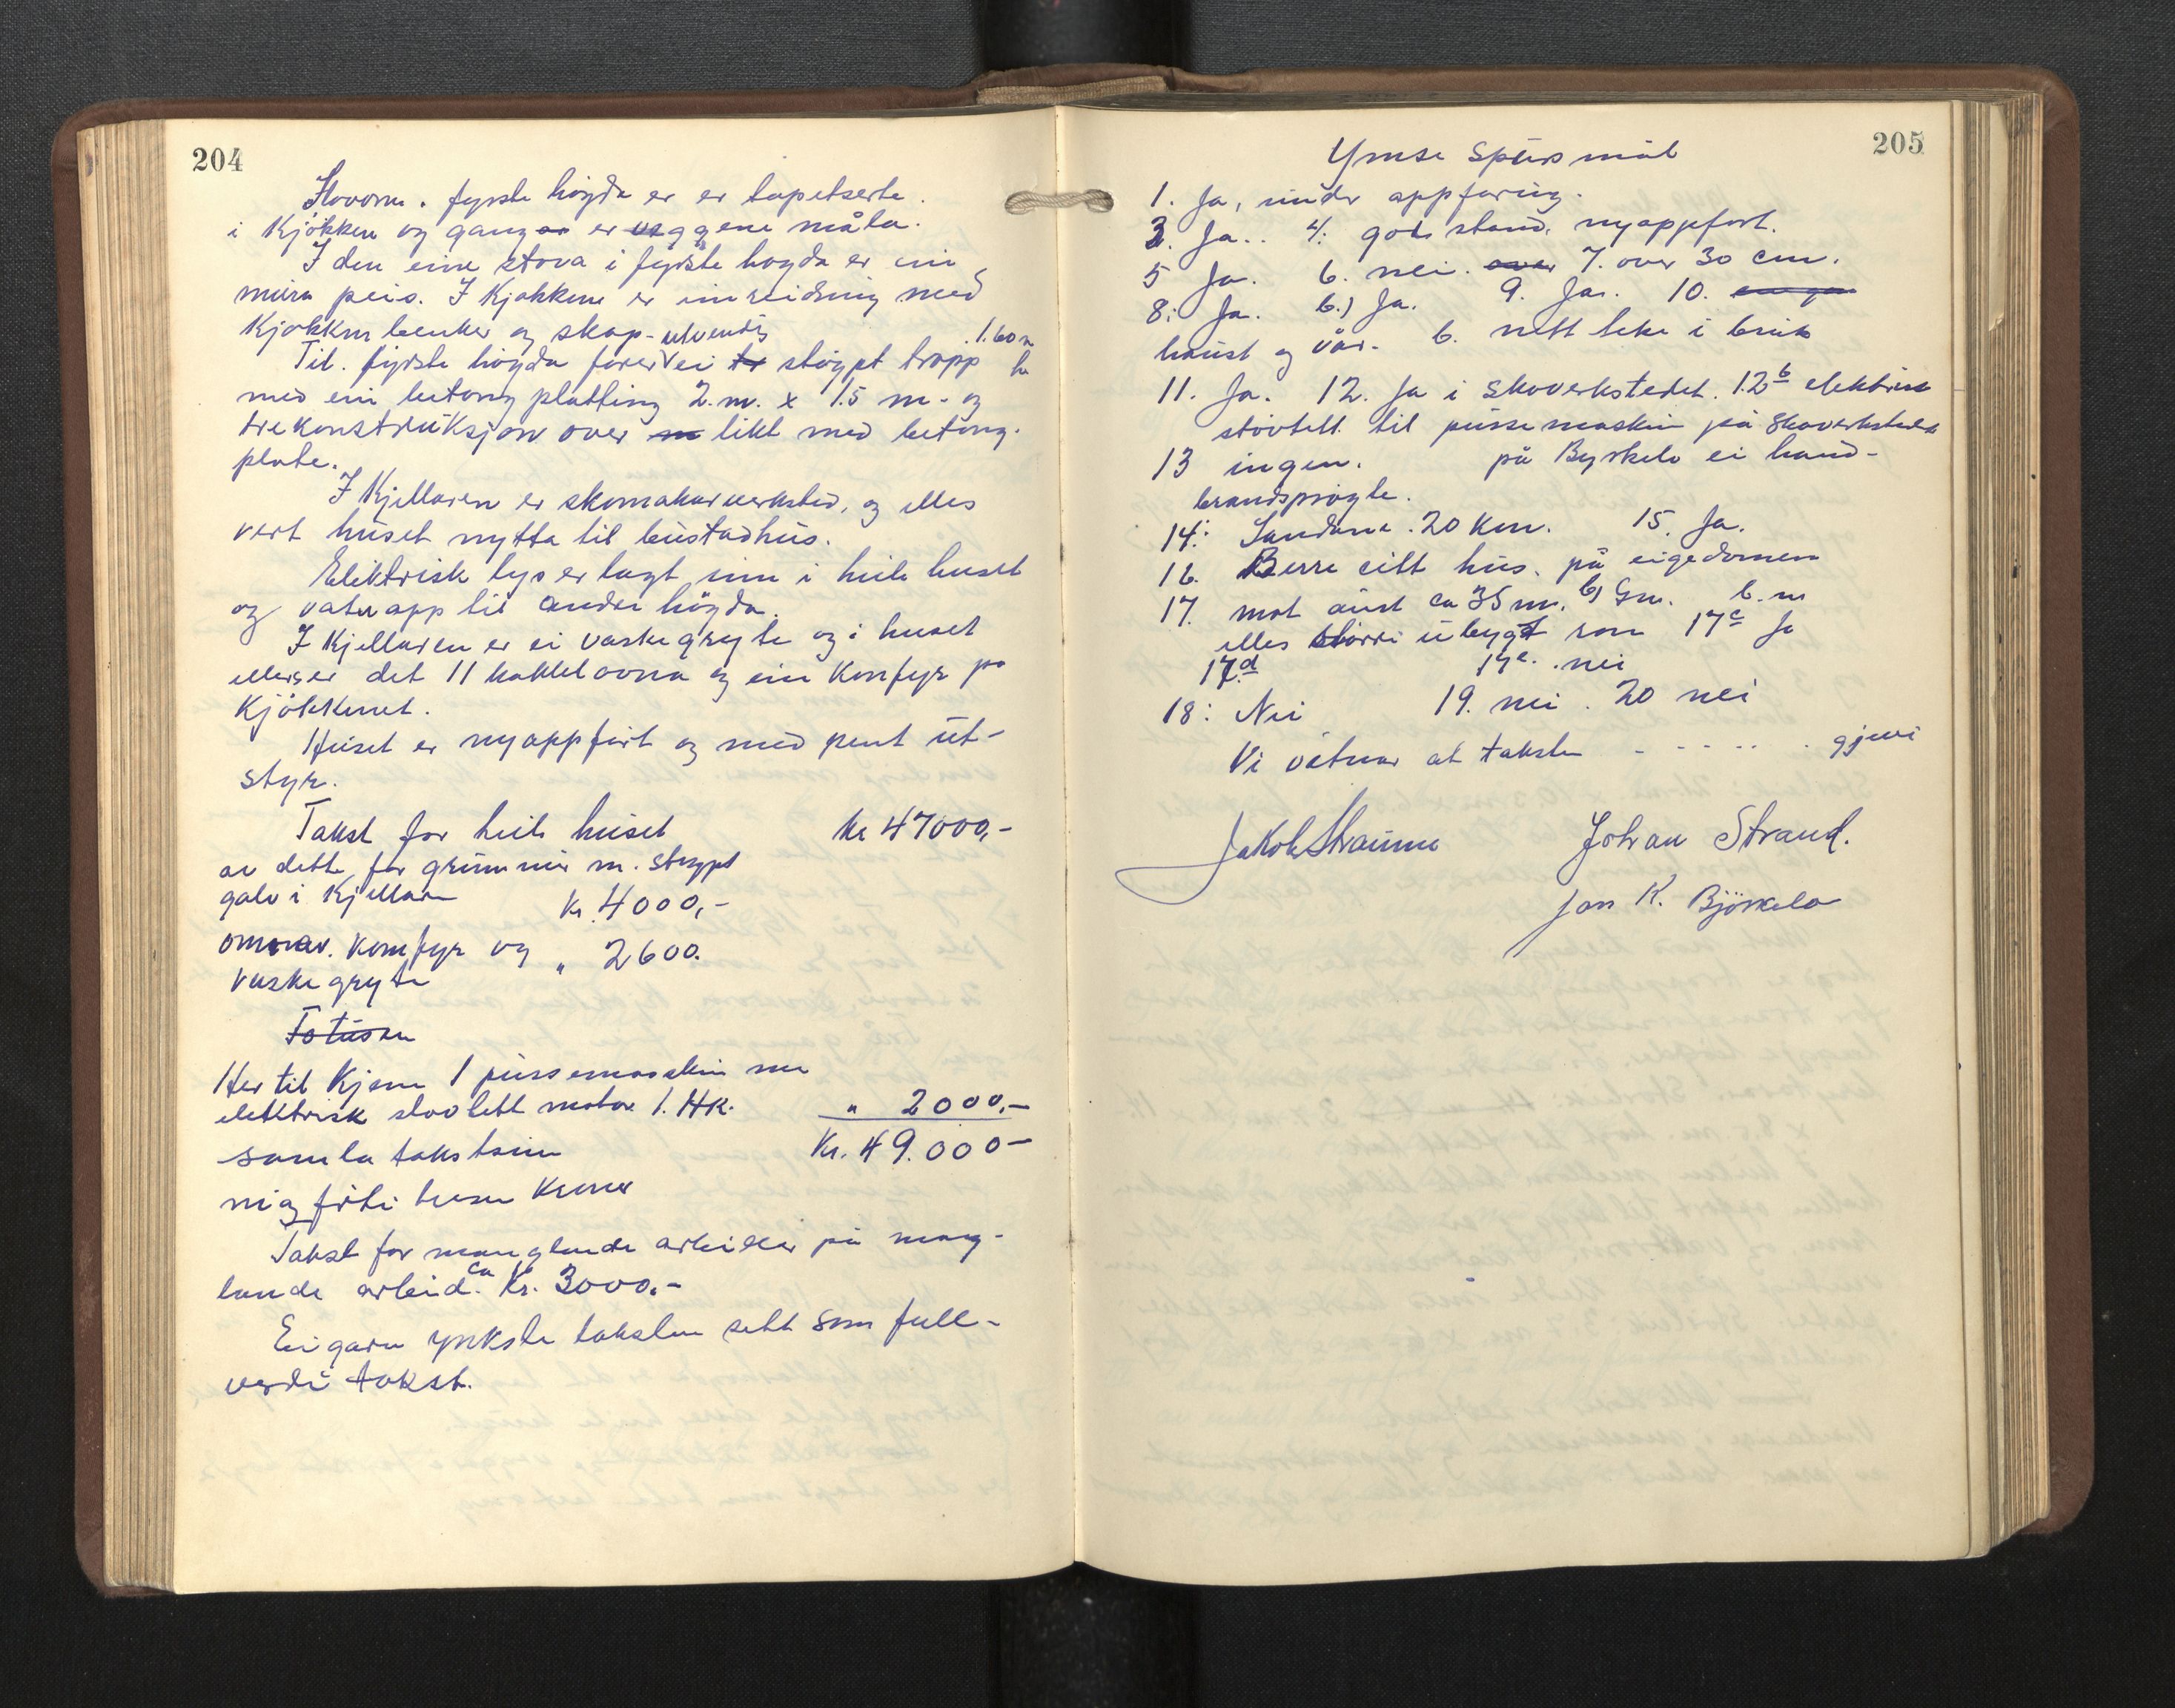 204
Stovorne i fyrste högda er er tapetserte.
i Kjökken og gangar er veggene måla.
I den eine stova i fyrste högda er ein
mura peis. I Kjøkkene er innreidning med
Kjøkkenbenker og skap - utvendig
Til fyrste högda fører ei tr støypt trapp 1.60 m
med ein betong platting 2.m. x 1.5 m. og
trekonstruksjon over m likt med betong.
plate.
I Kjellaren er skomakarverksted, og elles
vert huset nytta til bustadhus.
Elektrisk lys er lagt inn i heile huset
og vatn opp til andre högda.
I Kjellaren er ei vaskegryte og i huset
ellers er det 11 kakkelovna og ein Komfyr på
Kjökkenet.
Huset er nyoppført og med pent ut-
styr.
Takst for heile huset kr 47000,-
av dette for grunnmur m. støypt
golv i Kjellaren Kr. 4000,-
omnar. Komfyr og " 2600.
vaskegryte
Totusen
Her til Kjem 1 pussemaskin me
elektrisk støvlett motor 1. HK. " 2000,-
samla takstsum Kr. 49.000-
niogførti tusen Kroner
Takst for manglande arbeider på mang-
lande arbeid. ca Kr. 3000.-
Eigaren ynskste taksten sett som full-
verdi takst.
205
Ymse spursmål
1. Ja, under oppføring.
3. Ja.. 4. god stand. nyoppført.
5 Ja. 6. nei. over 7. over 30 cm.
8: Ja. b.) Ja. 9. Ja. 10.
haust og vår. b. nett teke i bruk
11. Ja. 12. Ja i skoverkstedet. 12b elektrisk
støvtett til pussemaskin på skoverkstedet
13 ingen. på Byrkelo ei hand-
brandsprøyte.
14: Sandane. 20 Km. 15. Ja.
16. Berre eitt hus. på eigedomen
17. mot aust ca 35 m. b) 9m. b. m
elles større ubygt rom 17c Ja
17d 17e. nei
18: Nei 19. nei. 20 nei
Vi vitnar at taksten - - - - - . gjevi
Jakob Straume Johan Strand.
Jon K. Björkelo